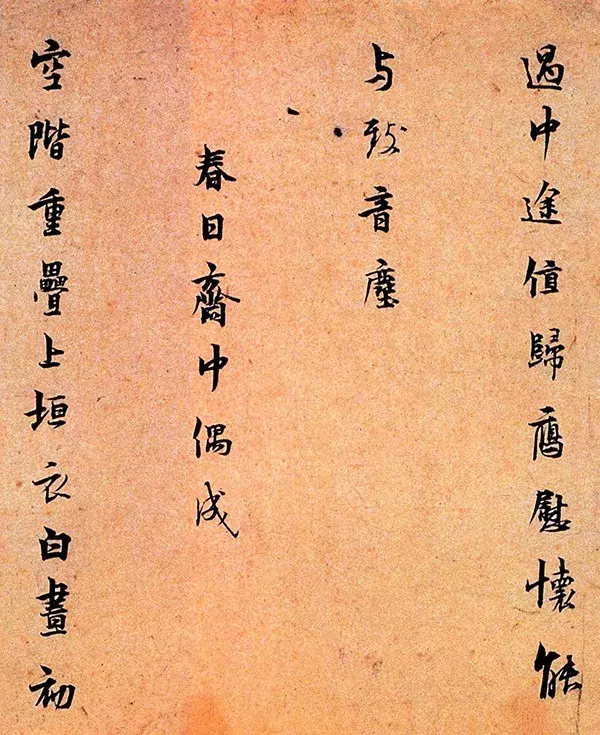 過中途值歸鴈慰懷能
与致音塵
春日齋中偶成
空階重疊上垣衣白晝初